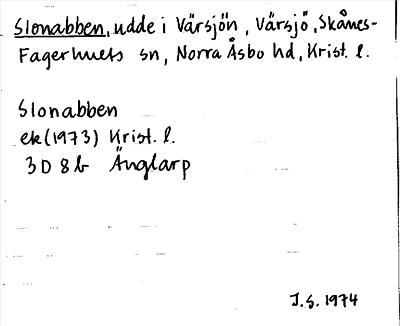 Slonabben, udde i Värsjön, Värsjö, Skånes-
Fagerhults sn, Norra Åsbo hd, Krist. l.
Slonabben
ek (1973) Krist. l.
3D 8b Änglarp
J.S. 1974